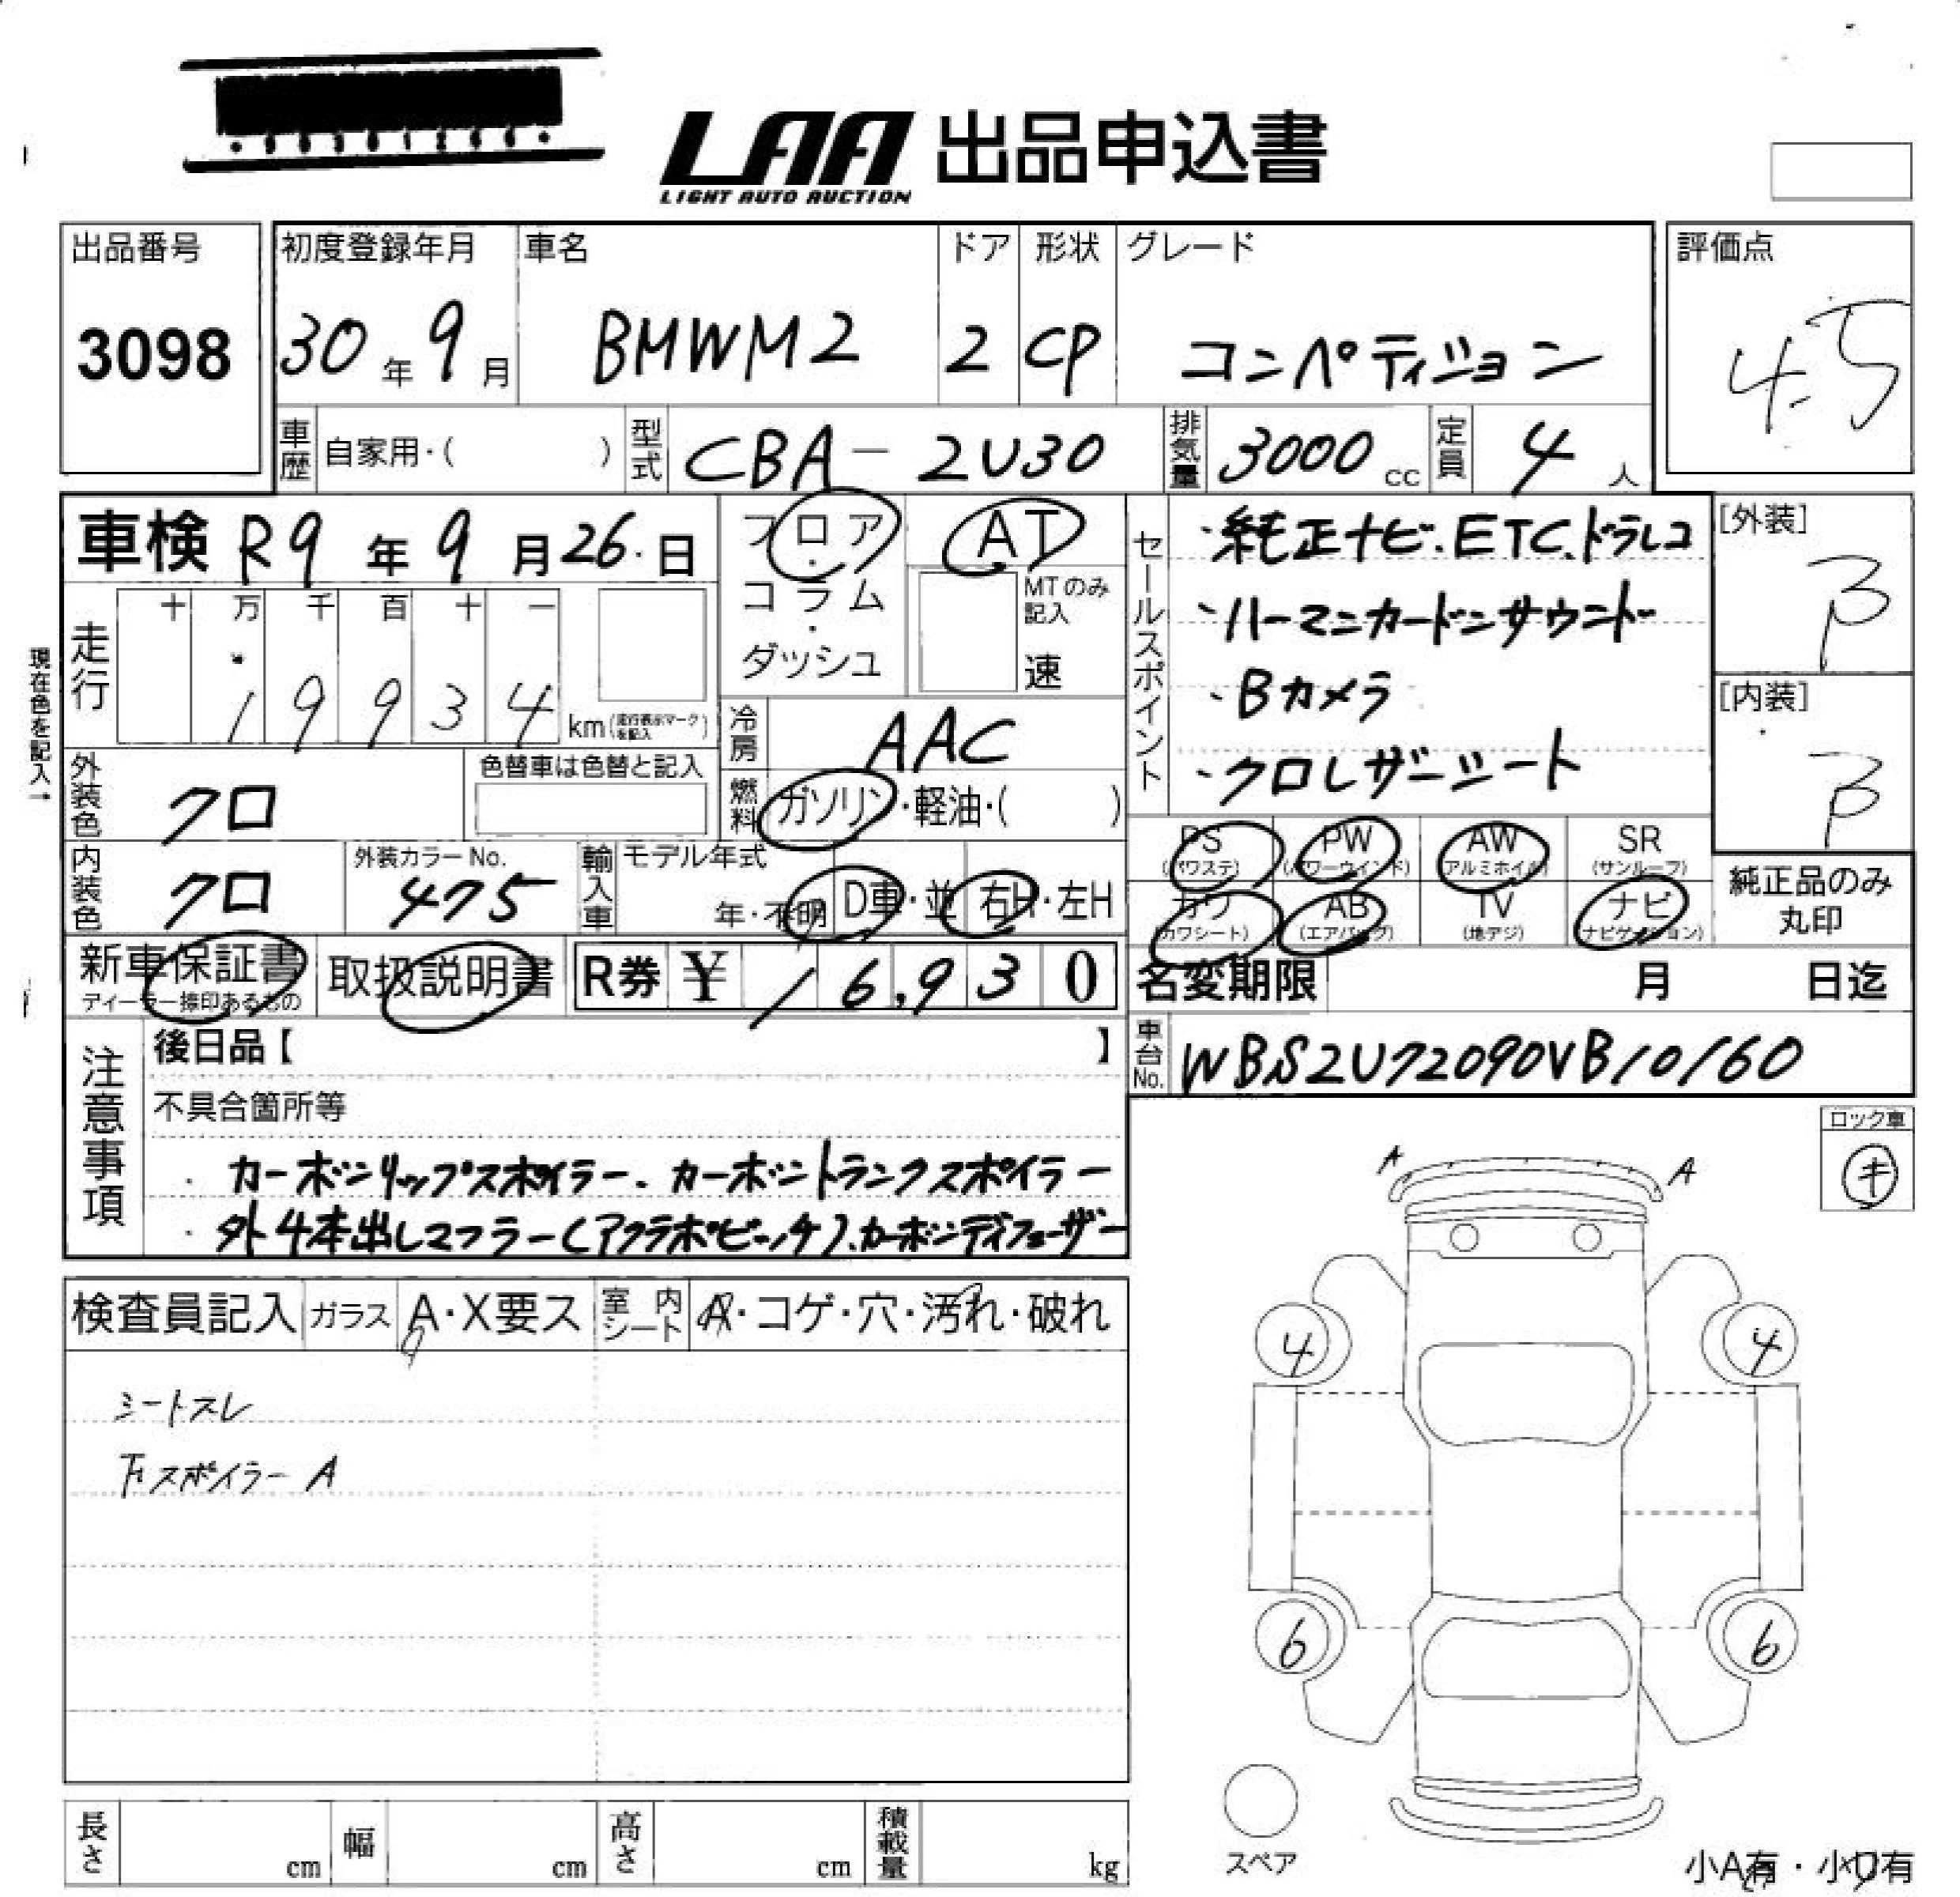 LAA 出品申込書
LIGHT AUTO AUCTION
出品番号 初度登録年月 車名 ドア 形状 グレード 評価点
3098 30年 9月 BMWM2 2 CP コンペティション 4.5
車歴 自家用・( ) 型式 CBA-2U30 排気量 3000cc 定員 4人
車検 R9年 9月 26日 フロア・コラム・ダッシュ AT MTのみ記入 速
走行 十 万 千 百 十 一
19934 km(走行表示マークを記入)
現在色を記入→
外装色 クロ 色替車は色替と記入
冷房 AAC
燃料 ガソリン・軽油・( )
内装色 クロ 外装カラーNo. 475 輸入車 モデル年式 年・不明 D車・並 右H・左H
セールスポイント
・純正ナビ.ETC.ドラレコ
・ハーマンカードンサウンド
・Bカメラ
・クロレザーシート
[外装] B
[内装] B
PS (パワステ) PW (パワーウインド) AW (アルミホイル) SR (サンルーフ)
カワ (カワシート) AB (エアバッグ) TV (地デジ) ナビ (ナビゲーション)
純正品のみ丸印
新車保証書 ディーラー捺印あるもの 取扱説明書 R券 ¥ 16,930
名変期限 月 日迄
車台No. WBS2U72090VB10160
注意事項
後日品【 】
不具合箇所等
・カーボンリップスポイラー、カーボントランクスポイラー
・外4本出しマフラー(アクラポビッチ)、カーボンディフューザー
ロック車
キ
A A
検査員記入 ガラス A・X要ス 室内シート A・コゲ・穴・汚れ・破れ
シートスレ
下スポイラーA
4 4
6 6
スペア
小A有・小U有
長さ cm 幅 cm 高さ cm 積載量 kg